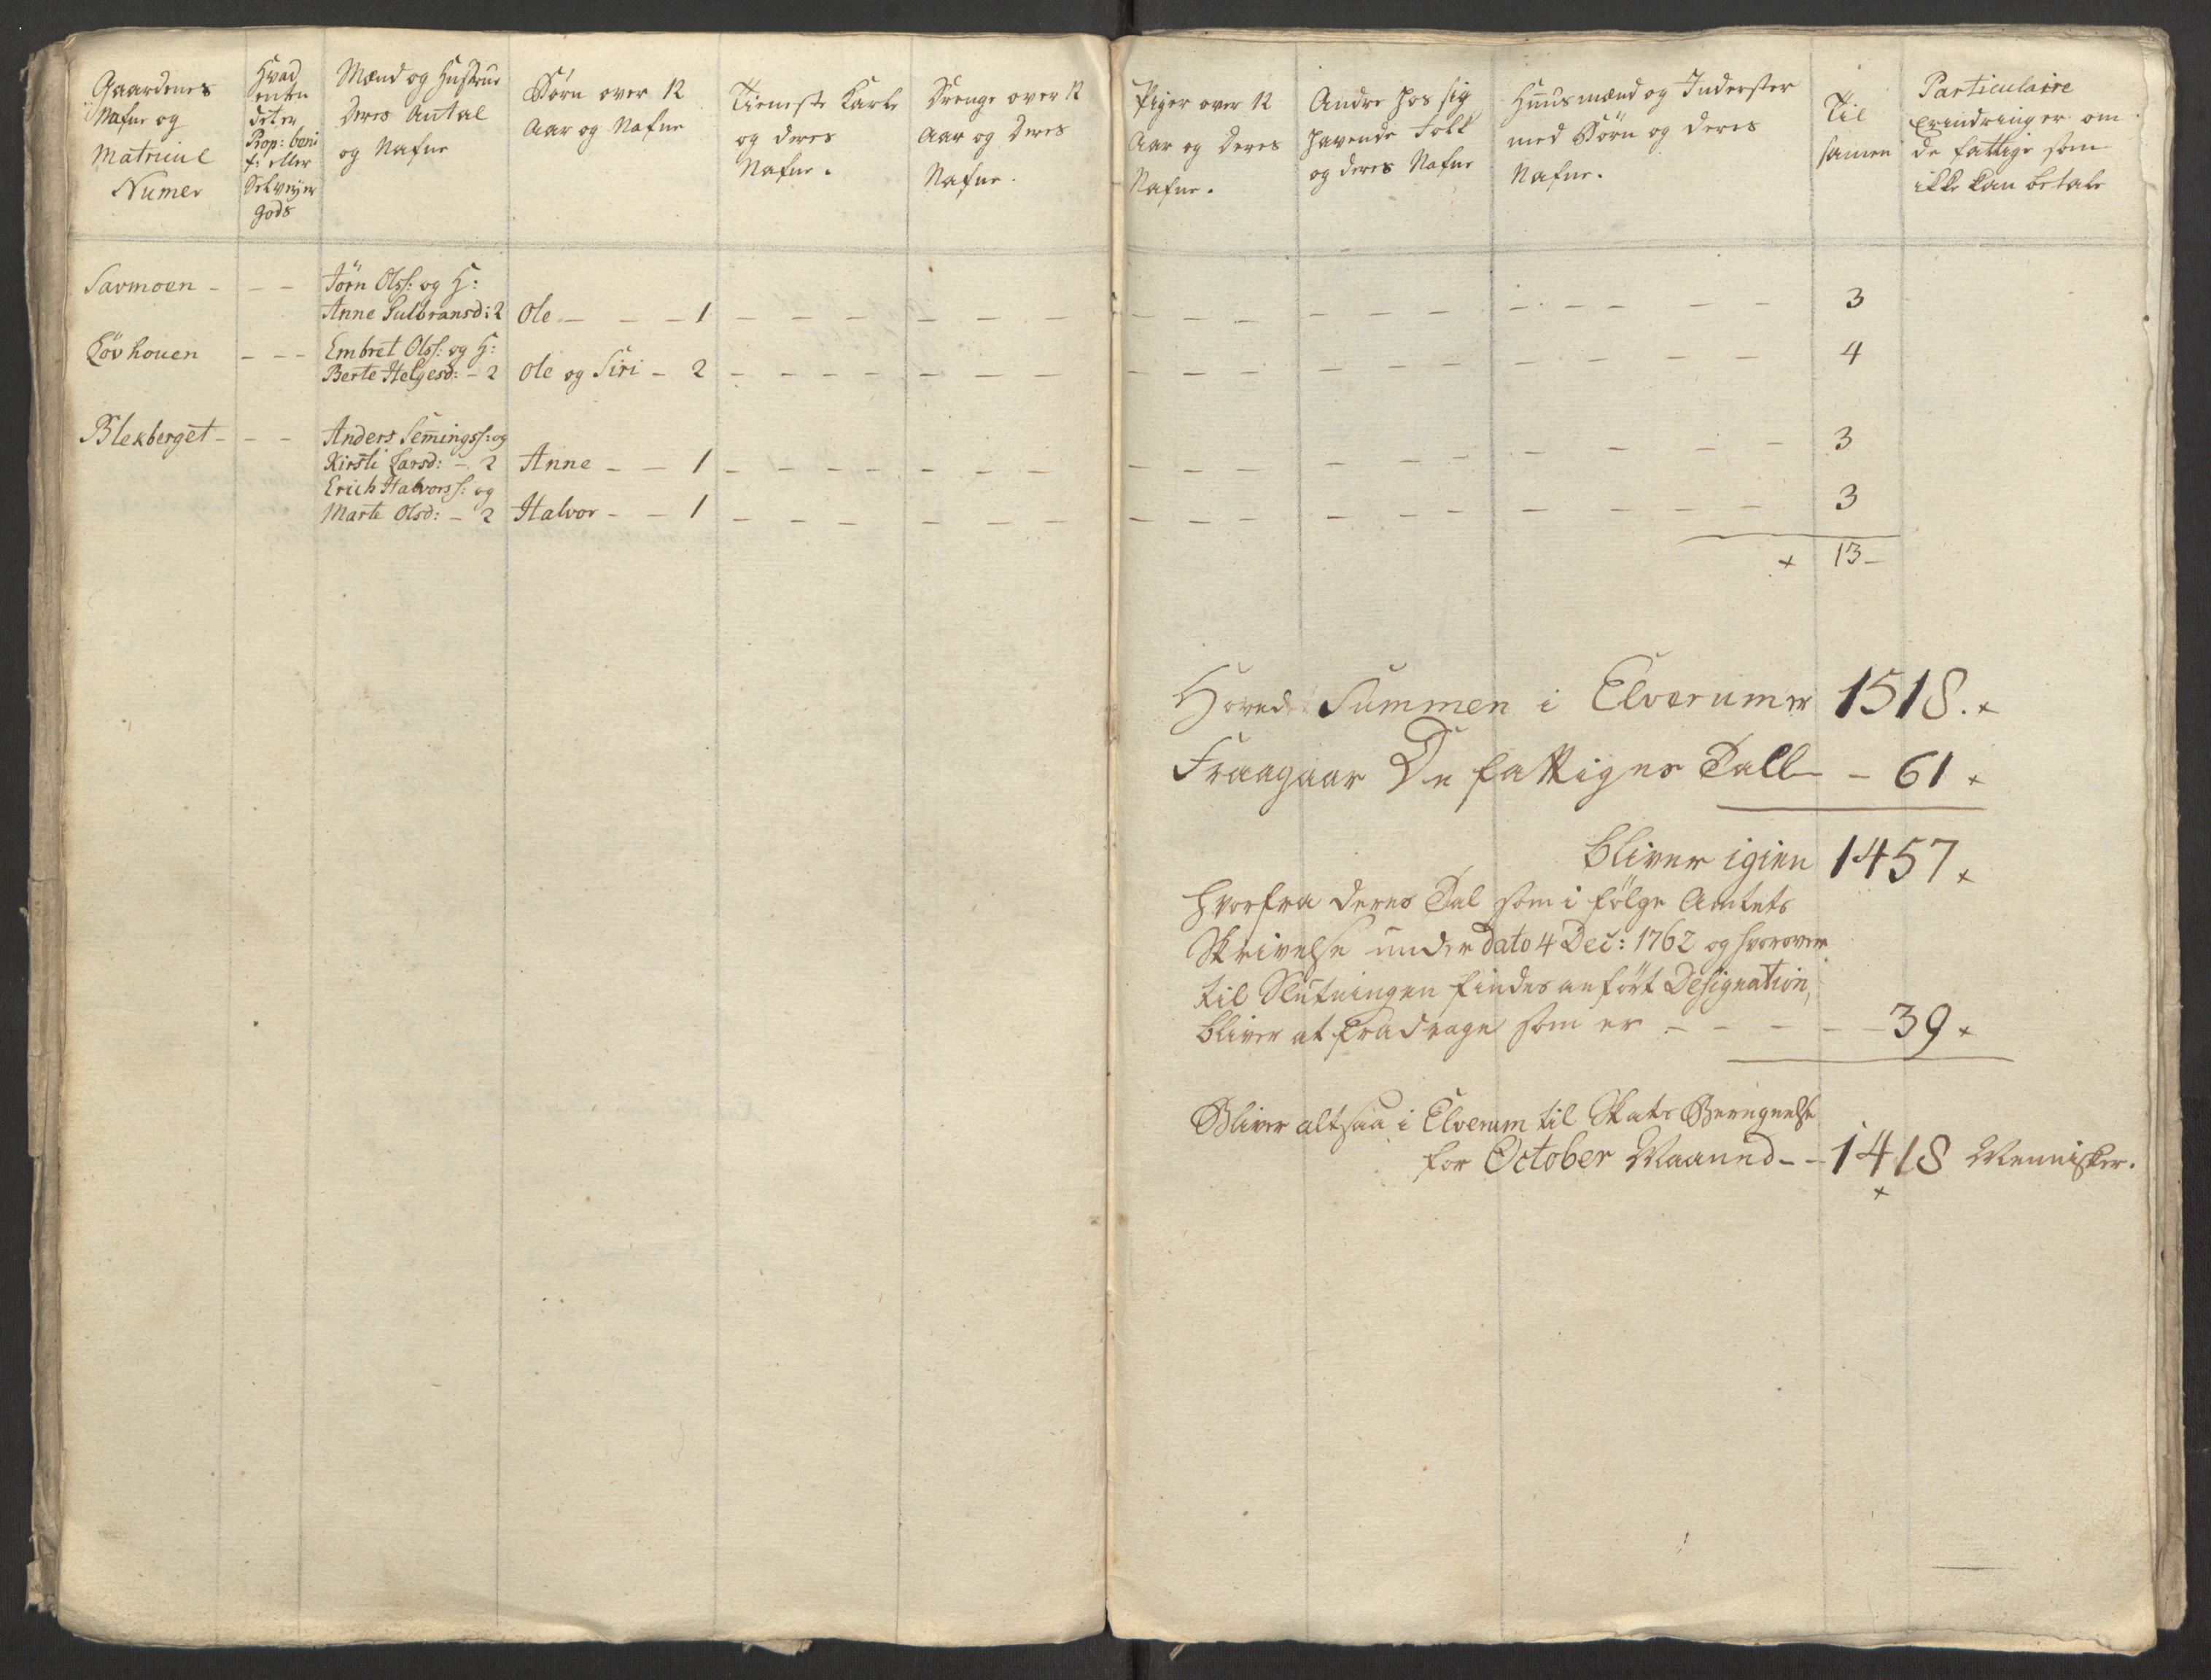 Gaardenes
Nafne og
Matricul
Numer
Hvad
enten
det er
Prop: beni
f: eller
Selveyer
gods
Mænd og Hustrue
deres Antal
og Nafne
Børn over 12
Aar og Nafne
Tieneste Karle
og deres
Nafne.
Drenge over 12
Aar og Deres
Nafne.
Piger over 12
Aar og Deres
Nafne.
Andre hos sig
havende Folk
og deres Nafne
Huusmænd og Inderster
med Børn og deres
Nafne.
Til
samen
Particulaire
Erindringer om
de fattige som
ikke kan betale
Savmoen - - - Jörn Olss: og H:
Anne Gulbransd: 2 Ole - - - 1 - - - 3
Lövhouen - - - Embret Olss: og H:
Berte Helgesd: - 2 Ole og Siri - 2 - - - 4
Blekberget - - - Anders Semingss: og
Kirsti Larsd: - 2 Anne - - 1 - - - 3
Erich Halvorss: og
Marte Olsd: - 2 Halvor - - 1 - - - 3
+ 13 -
Hoved Summen i Elverum er 1518. +
Fraagaar De fattiges Tall - - 61 +
bliver igien 1457 +
hvorfra deres Tal som i følge Amtets
Skrivelse under dato 4 Dec: 1762 og hvorover
til Slutningen findes anført Designation,
bliver at fradrage som er - - - - - 39 +
Bliver altsaa i Elverum til Skats Beregnelse
for October Maaned - - 1418 Mennisker.
+